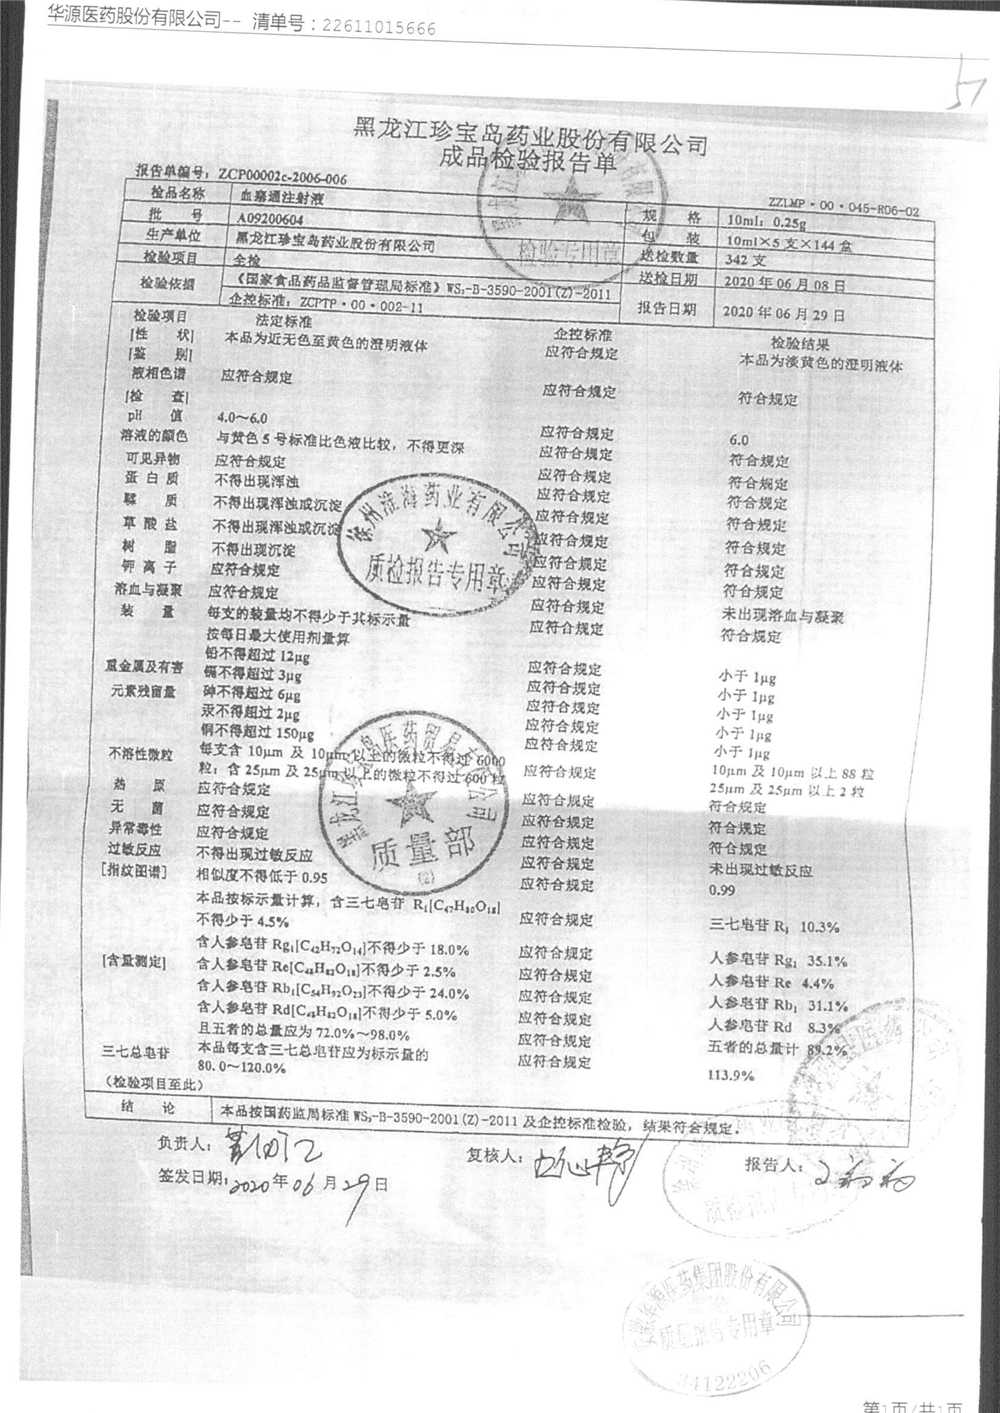 华源医药股份有限公司-- 清单号：22611015666
黑龙江珍宝岛药业股份有限公司
成品检验报告单
报告单编号：ZCP00002c-2006-006
ZZLMP·00·045-R06-02
检品名称 血塞通注射液 规 格 10ml：0.25g
批 号 A09200604 包 装 10ml×5支×144盒
生产单位 黑龙江珍宝岛药业股份有限公司 送检数量 342支
检验项目 全检 送检日期 2020年06月08日
检验依据 《国家食品药品监督管理局标准》WS₃-B-3590-2001(Z)-2011
企控标准：ZCPTP·00·002-11 报告日期 2020年06月29日
检验项目 法定标准 企控标准 检验结果
[性 状] 本品为近无色至黄色的澄明液体 应符合规定 本品为淡黄色的澄明液体
[鉴 别]
液相色谱 应符合规定 应符合规定 符合规定
[检 查]
pH 值 4.0～6.0 应符合规定 6.0
溶液的颜色 与黄色5号标准比色液比较，不得更深 应符合规定 符合规定
可见异物 应符合规定 应符合规定 符合规定
蛋白质 不得出现浑浊 应符合规定 符合规定
鞣 质 不得出现浑浊或沉淀 应符合规定 符合规定
草酸盐 不得出现浑浊或沉淀 应符合规定 符合规定
树 脂 不得出现沉淀 应符合规定 符合规定
钾离子 应符合规定 应符合规定 符合规定
溶血与凝聚 应符合规定 应符合规定 未出现溶血与凝聚
装 量 每支的装量均不得少于其标示量 应符合规定 符合规定
按每日最大使用剂量算
重金属及有害
元素残留量
铅不得超过12μg 应符合规定 小于1μg
镉不得超过3μg 应符合规定 小于1μg
砷不得超过6μg 应符合规定 小于1μg
汞不得超过2μg 应符合规定 小于1μg
铜不得超过150μg 应符合规定 小于1μg
不溶性微粒 每支含10μm及10μm以上的微粒不得过6000 应符合规定 10μm及10μm以上88粒
粒；含25μm及25μm以上的微粒不得过600粒 25μm及25μm以上2粒
热 原 应符合规定 应符合规定 符合规定
无 菌 应符合规定 应符合规定 符合规定
异常毒性 应符合规定 应符合规定 符合规定
过敏反应 不得出现过敏反应 应符合规定 未出现过敏反应
[指纹图谱] 相似度不得低于0.95 应符合规定 0.99
本品按标示量计算，含三七皂苷 R₁[C₄₇H₈₀O₁₈]
不得少于4.5% 应符合规定 三七皂苷 R₁ 10.3%
含人参皂苷 Rg₁[C₄₂H₇₂O₁₄]不得少于18.0% 应符合规定 人参皂苷 Rg₁ 35.1%
[含量测定] 含人参皂苷 Re[C₄₈H₈₂O₁₈]不得少于2.5% 应符合规定 人参皂苷 Re 4.4%
含人参皂苷 Rb₁[C₅₄H₉₂O₂₃]不得少于24.0% 应符合规定 人参皂苷 Rb₁ 31.1%
含人参皂苷 Rd[C₄₈H₈₂O₁₈]不得少于5.0% 应符合规定 人参皂苷 Rd 8.3%
且五者的总量应为72.0%～98.0% 应符合规定 五者的总量计 89.2%
三七总皂苷 本品每支含三七总皂苷应为标示量的
80.0～120.0% 应符合规定 113.9%
（检验项目至此）
结 论 本品按国药监局标准 WS₃-B-3590-2001(Z)-2011及企控标准检验，结果符合规定。
负责人： 复核人： 报告人：
签发日期：2020年06月29日
检验专用章
徐州淮海药业有限公司
质检报告专用章
黑龙江珍宝岛医药贸易有限公司
质量部
(2)
华源医药集团股份有限公司
专用章
34122206
第1页/共1页